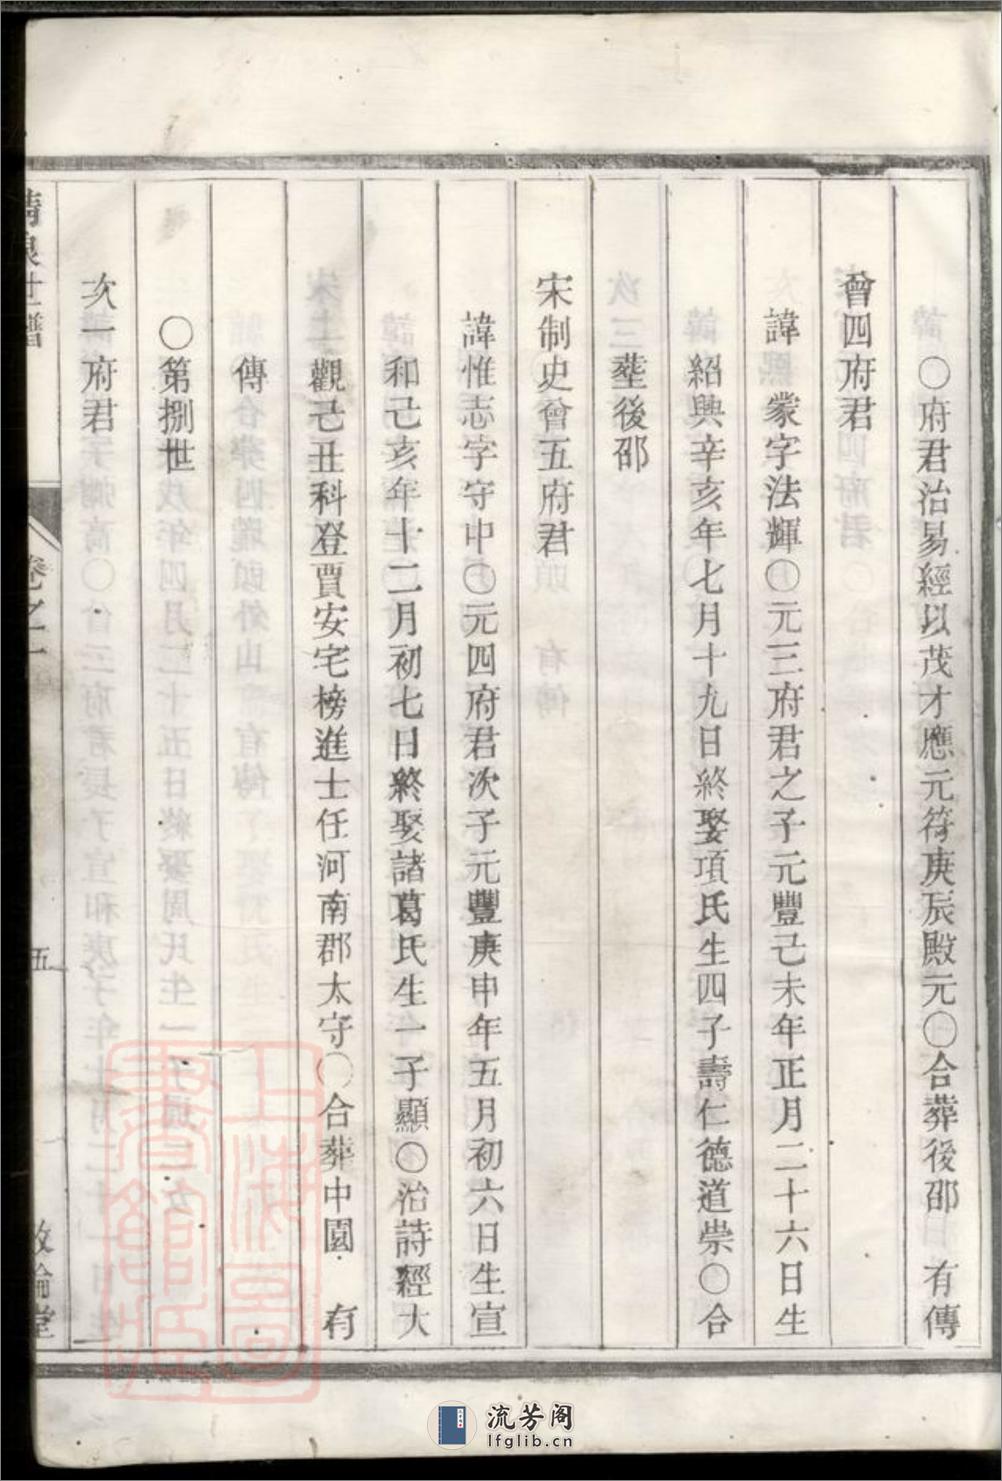 〇府君治易經以茂才應元符庚辰殿元〇合葬後邵 有傳
曾四府君
諱蒙字法輝〇元三府君之子元豐己未年正月二十六日生
紹興辛亥年七月十九日終娶項氏生四子壽仁德道崇〇合
塟後邵
宋制史曾五府君
諱惟志字守中〇元四府君次子元豐庚申年五月初六日生宣
和己亥年十二月初七日終娶諸葛氏生一子顯〇治詩經大
觀己丑科登賈安宅榜進士任河南郡太守〇合葬中園 有
傳
〇第捌世
次一府君
世譜
卷之一
五
倫堂
上海圖書館藏
流芳阁
lfglib.cn